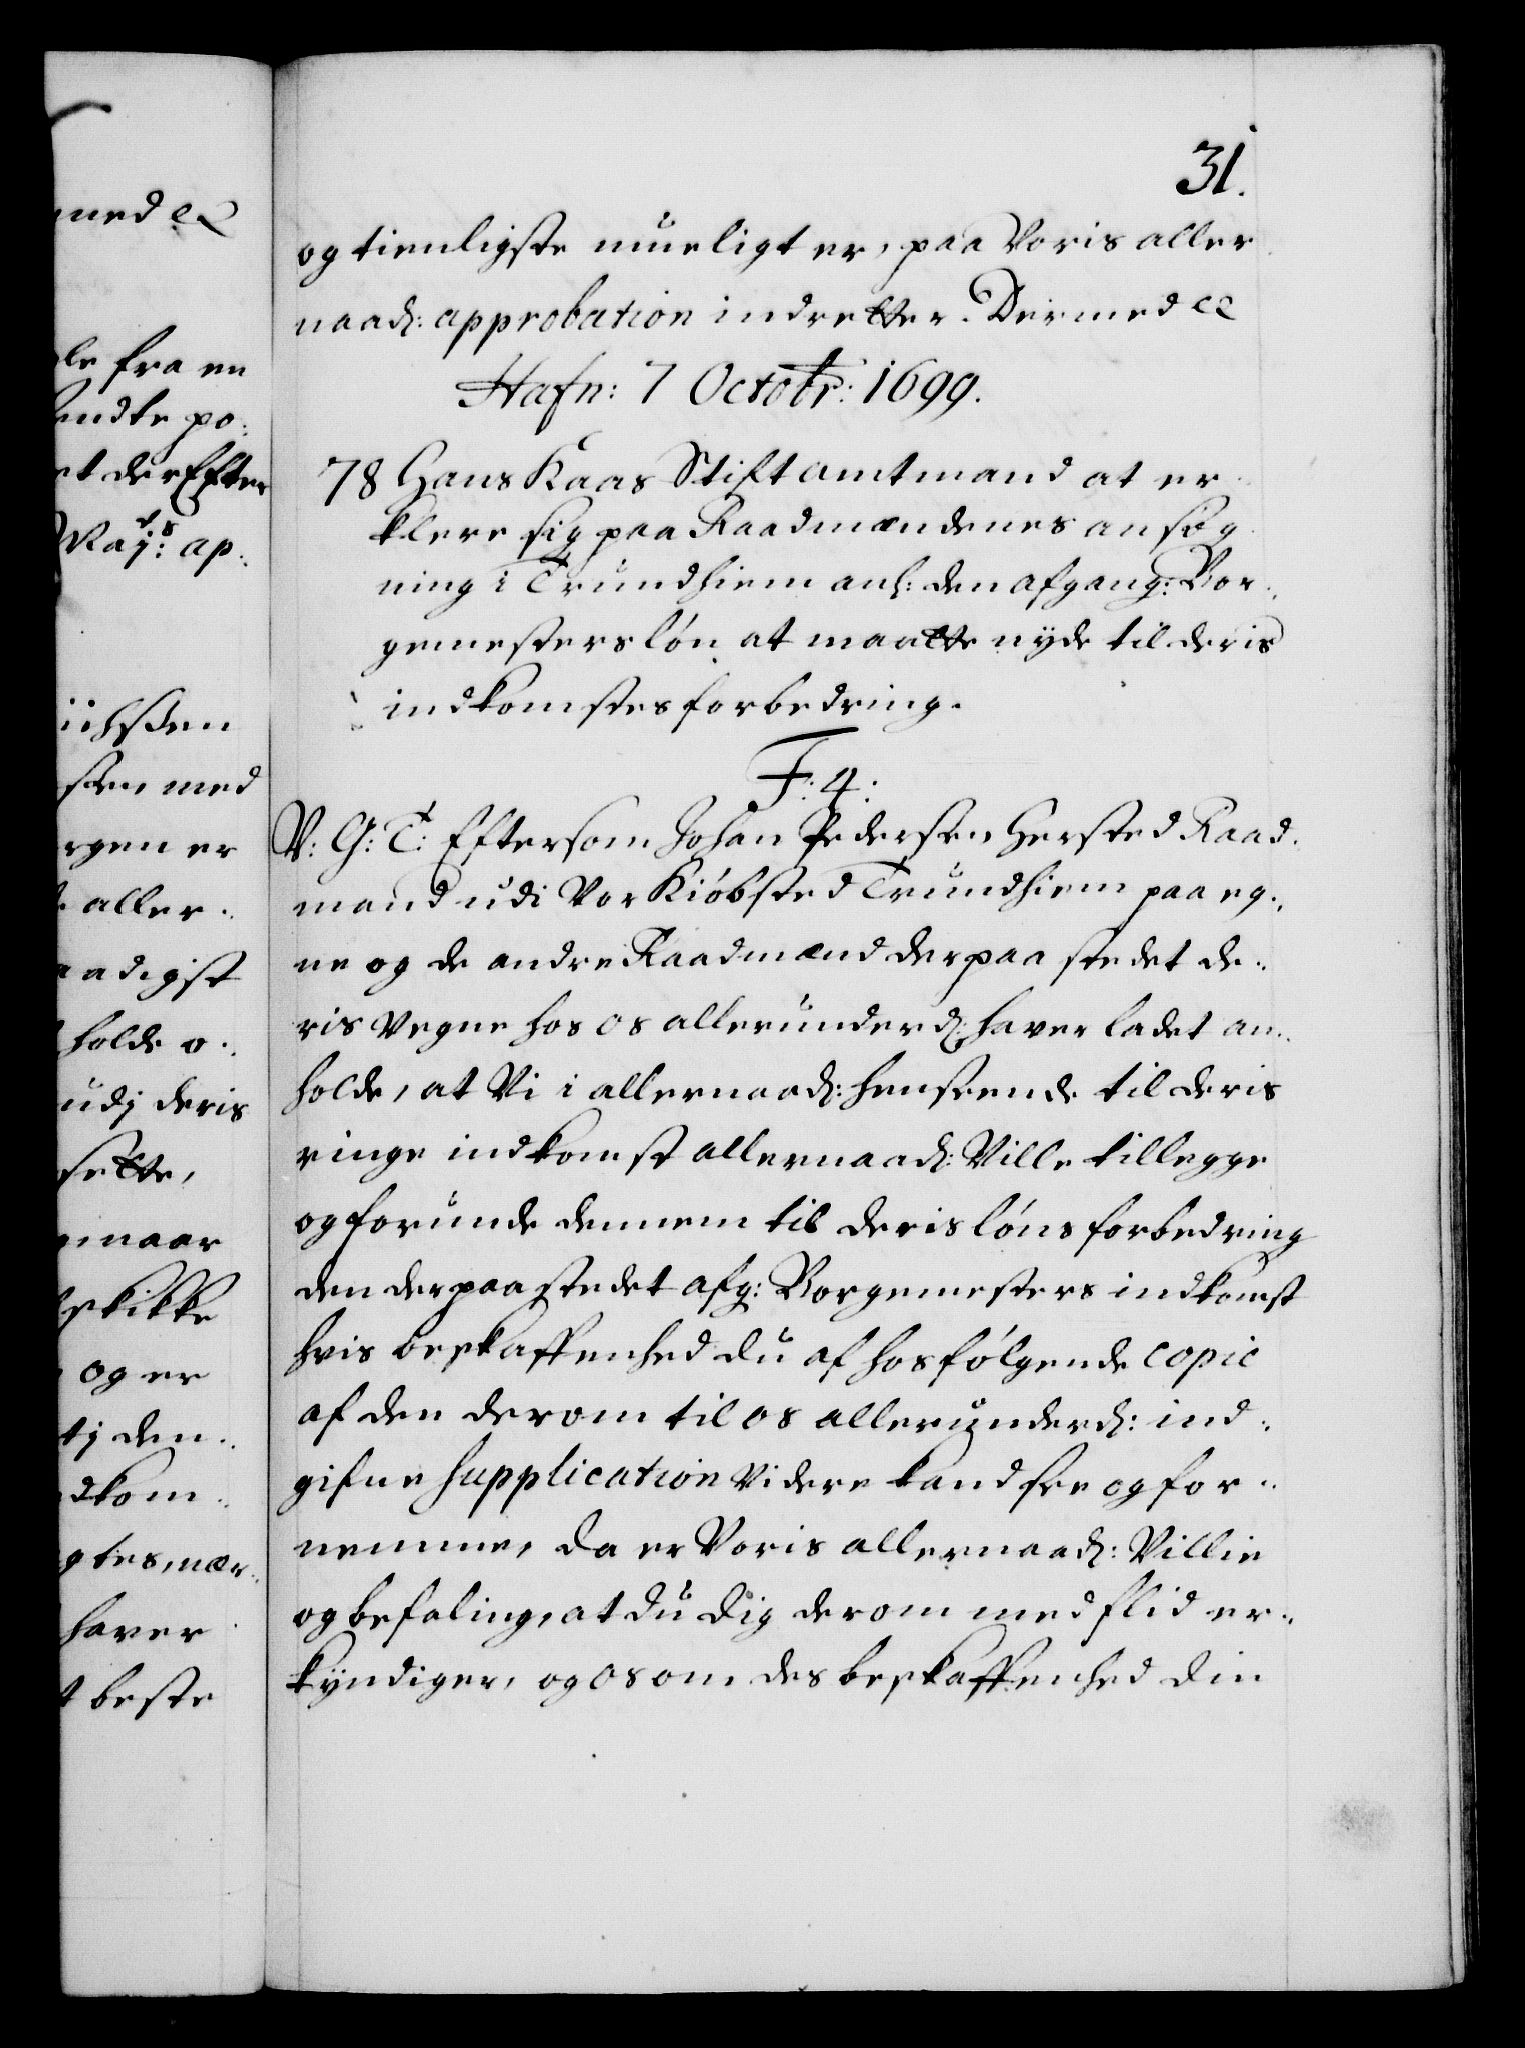 31.
og tienligste mueligt er, paa Voris aller
naadh: approbation indretter. Dermed etc
Hafn: 7 Octobr: 1699.
78 Hans Kaas Stiftamtmand at er-
klere sig paa Raadmændenes ansøg
ning i Trundhiem anl: den afgang: Bor-
gemesters løn at maatte nyde til deris
indkomstes forbedring.
F: 4:
V: G: T: Eftersom Johan Pedersen Hersted Raad-
mand udi Vor Kiøbsted Trundhiem paa eg-
ne og de andre Raadmænd der paa stedet de-
ris vegne hos os allerunderdh: haver ladet an-
holde, at Vi i allernaadh: henseende til deris
ringe indkomst allernaadh: Ville tillegge
og forunde dennem til deris løns forbedring
den der paa stedet afg: Borgemesters indkomst
hvis beskaffenhed du af hosfølgende copie
af den derom til os allerunderdh: ind-
gifne supplication videre kand see og for-
nemme, da er Voris allernaadh: Villie
og befaling, at du dig derom med flid er-
kyndiger, og os om des beskaffenhed din
med etc
le fra en
endte po-
et der Efter
May:ts ap-
iichssen
sen med
rgen er
aller-
aadigst
holde o-
udj deris
sette,
naar
skikke
og er
tj den-
dkom-
gtes, nær-
haver
t beste